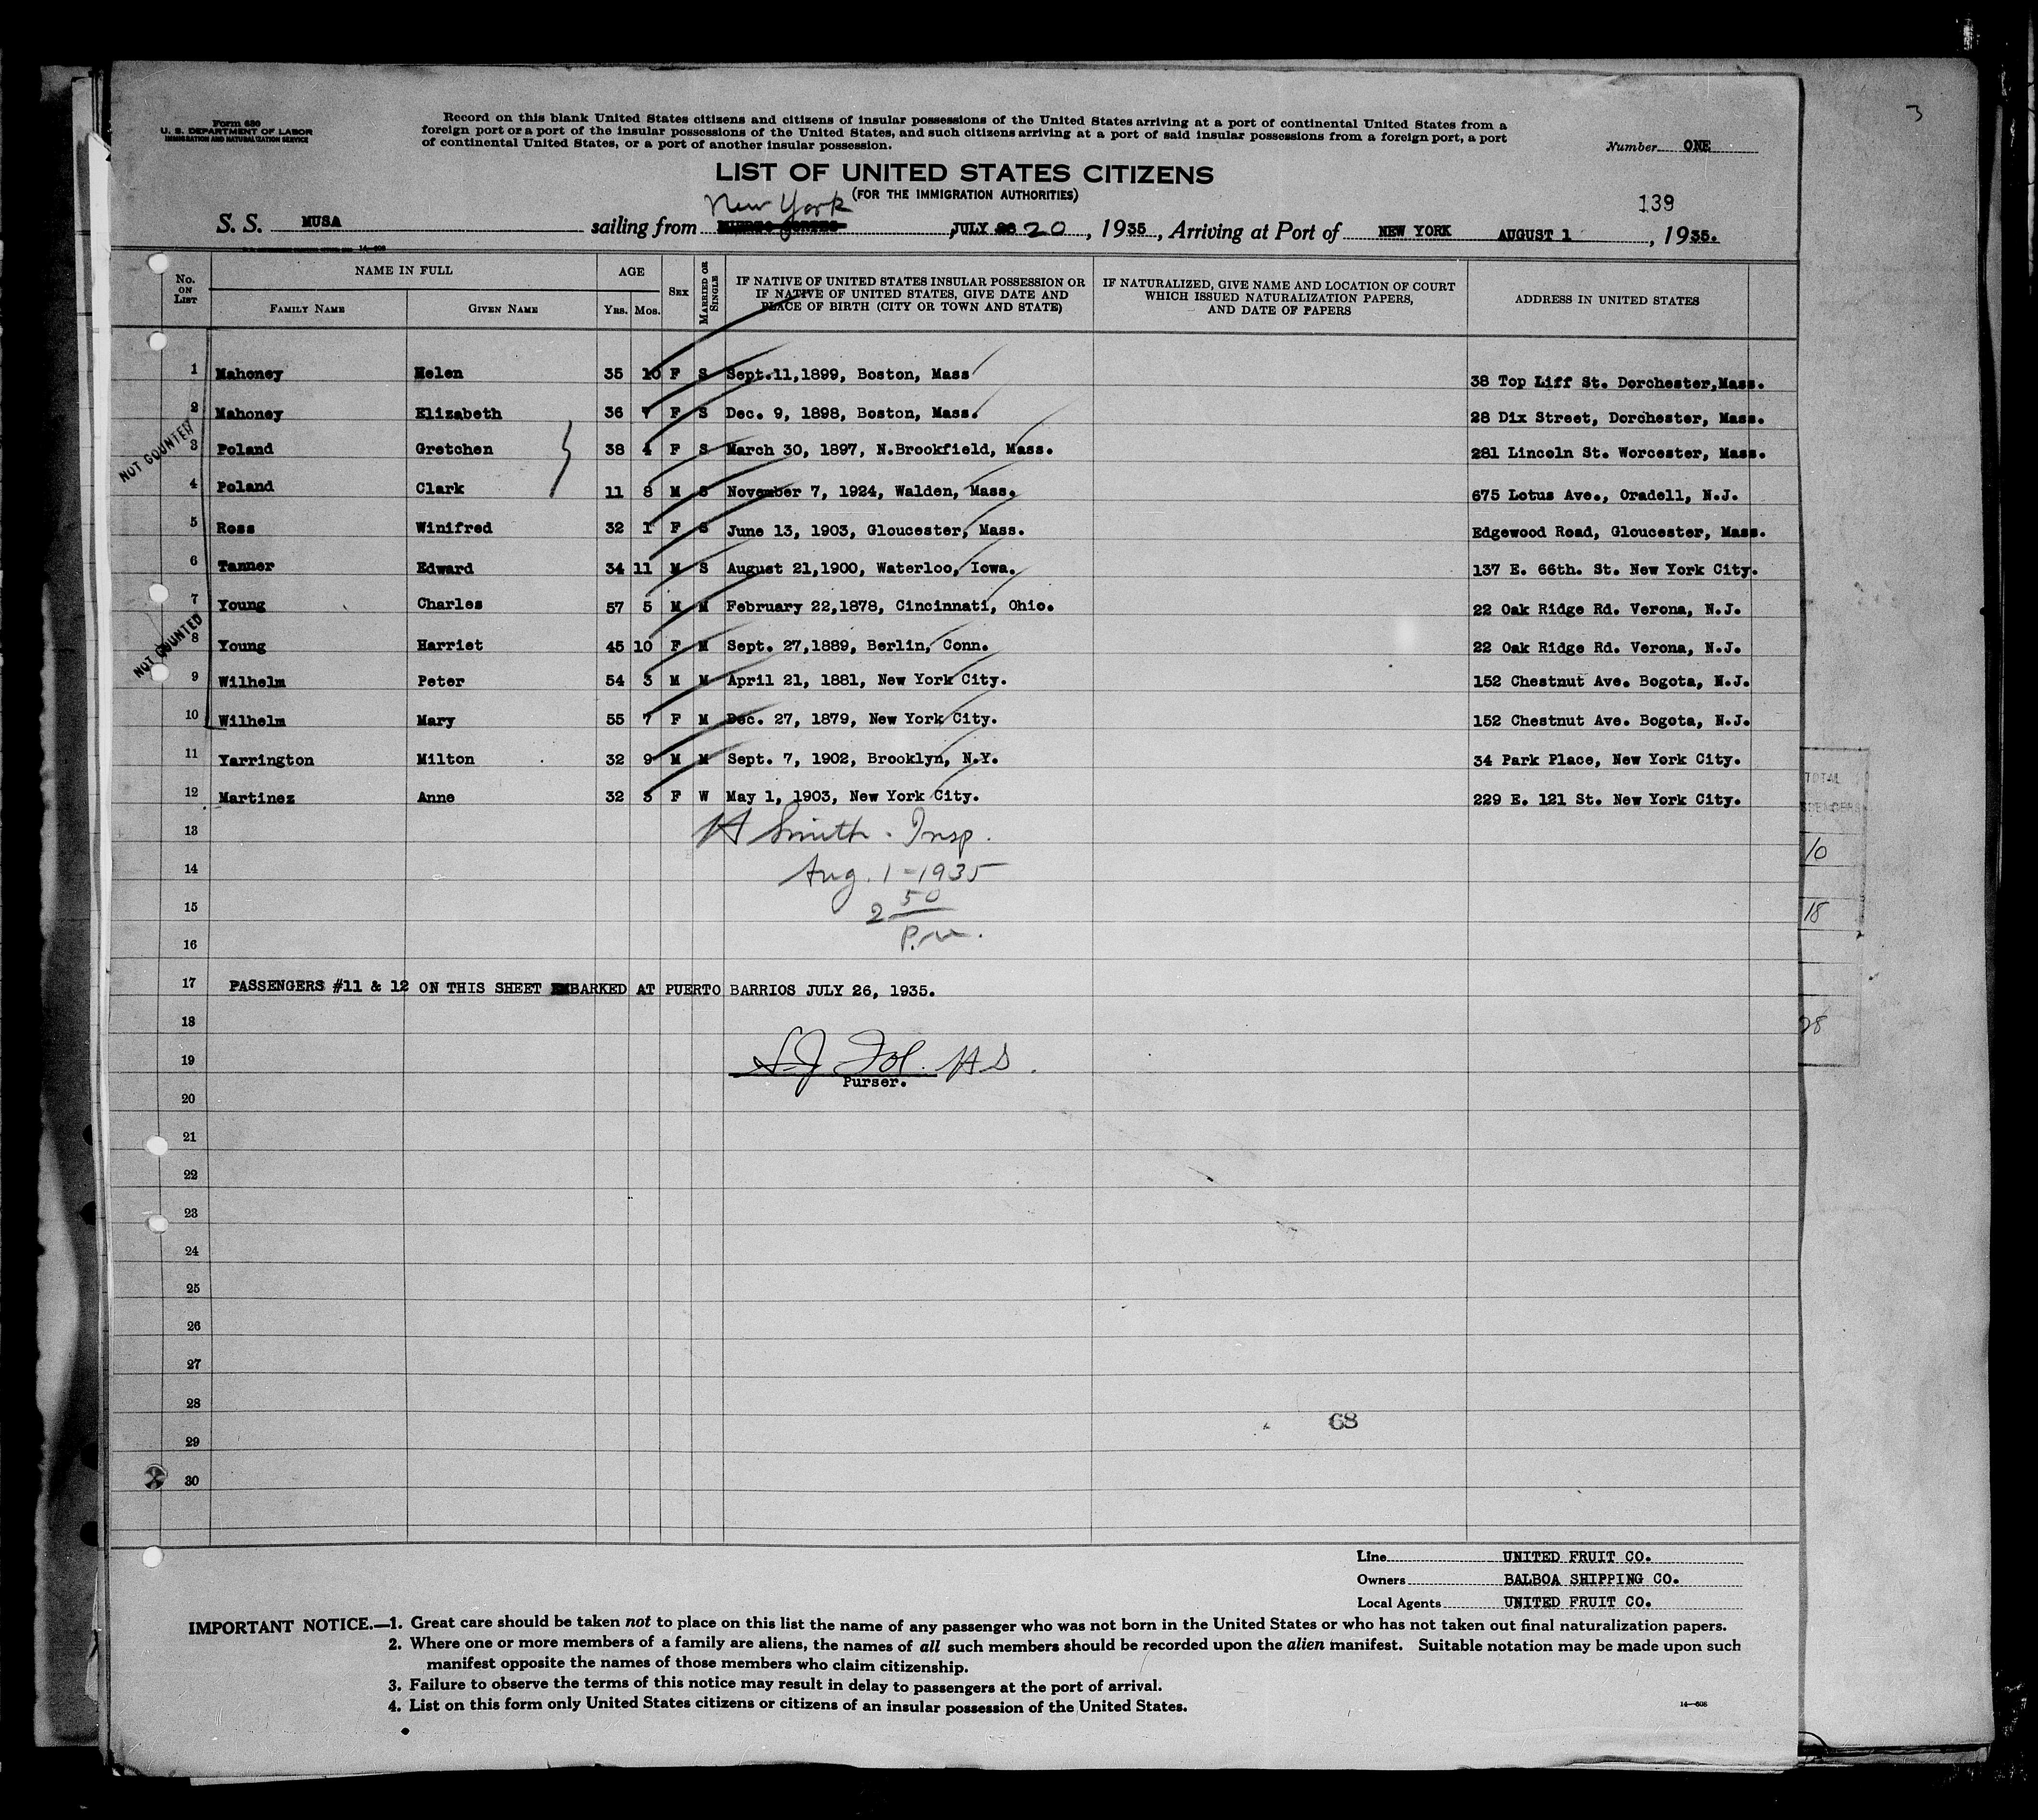 3
Form 630
U. S. DEPARTMENT OF LABOR
IMMIGRATION AND NATURALIZATION SERVICE
Record on this blank United States citizens and citizens of insular possessions of the United States arriving at a port of continental United States from a
foreign port or a port of the insular possessions of the United States, and such citizens arriving at a port of said insular possessions from a foreign port, a port
of continental United States, or a port of another insular possession.
Number ONE
LIST OF UNITED STATES CITIZENS
(FOR THE IMMIGRATION AUTHORITIES)
139
New York
S. S. MUSA sailing from JULY 20, 1935, Arriving at Port of NEW YORK AUGUST 1, 1935.
No. ON LIST NAME IN FULL AGE SEX MARRIED OR SINGLE IF NATIVE OF UNITED STATES INSULAR POSSESSION OR IF NATIVE OF UNITED STATES, GIVE DATE AND PLACE OF BIRTH (CITY OR TOWN AND STATE) IF NATURALIZED, GIVE NAME AND LOCATION OF COURT WHICH ISSUED NATURALIZATION PAPERS, AND DATE OF PAPERS ADDRESS IN UNITED STATES
FAMILY NAME GIVEN NAME YRS. MOS.
1 Mahoney Helen 35 10 F S Sept.11,1899, Boston, Mass 38 Top Liff St. Dorchester,Mass.
2 Mahoney Elizabeth 36 7 F S Dec. 9, 1898, Boston, Mass. 28 Dix Street, Dorchester, Mass.
NOT COUNTED
3 Poland Gretchen 38 4 F S March 30, 1897, N.Brookfield, Mass. 281 Lincoln St. Worcester, Mass.
4 Poland Clark 11 8 M S November 7, 1924, Walden, Mass. 675 Lotus Ave., Oradell, N.J.
5 Ross Winifred 32 1 F S June 13, 1903, Gloucester, Mass. Edgewood Road, Gloucester, Mass.
6 Tanner Edward 34 11 M S August 21,1900, Waterloo, Iowa. 137 E. 66th. St. New York City.
7 Young Charles 57 5 M M February 22,1878, Cincinnati, Ohio. 22 Oak Ridge Rd. Verona, N.J.
NOT COUNTED
8 Young Harriet 45 10 F M Sept. 27,1889, Berlin, Conn. 22 Oak Ridge Rd. Verona, N.J.
9 Wilhelm Peter 54 3 M M April 21, 1881, New York City. 152 Chestnut Ave. Bogota, N.J.
10 Wilhelm Mary 55 7 F M Dec. 27, 1879, New York City. 152 Chestnut Ave. Bogota, N.J.
11 Yarrington Milton 32 9 M M Sept. 7, 1902, Brooklyn, N.Y. 34 Park Place, New York City.
12 Martinez Anne 32 3 F W May 1, 1903, New York City. 229 E. 121 St. New York City.
TOTAL
13 H Smith - Insp.
10
14 Aug. 1 - 1935
15 2 50
18
16 P.M.
17 PASSENGERS #11 & 12 ON THIS SHEET EMBARKED AT PUERTO BARRIOS JULY 26, 1935.
18
28
19
Purser.
20
21
22
23
24
25
26
27
28
68
29
30
Line UNITED FRUIT CO.
Owners BALBOA SHIPPING CO.
Local Agents UNITED FRUIT CO.
IMPORTANT NOTICE.—1. Great care should be taken not to place on this list the name of any passenger who was not born in the United States or who has not taken out final naturalization papers.
2. Where one or more members of a family are aliens, the names of all such members should be recorded upon the alien manifest. Suitable notation may be made upon such
manifest opposite the names of those members who claim citizenship.
3. Failure to observe the terms of this notice may result in delay to passengers at the port of arrival.
4. List on this form only United States citizens or citizens of an insular possession of the United States.
14—608